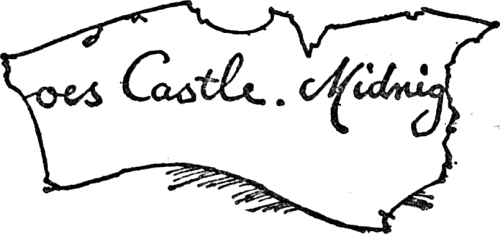 oes Castle. Midnig